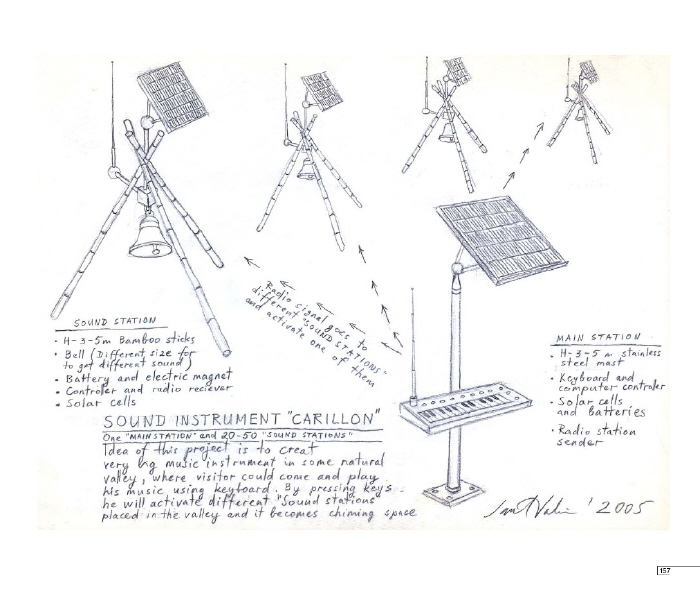 SOUND STATION
• H-3-5m Bamboo sticks
• Bell (Different size for
to get different sound)
• Battery and electric magnet
• Controler and radio reciever
• Solar cells
Radio signal goes to
different "SOUND STATIONS"
and activate one of them
MAIN STATION
• H-3-5 m stainless
steel mast
• Keyboard and
computer controler
• Solar cells
and batteries
• Radio station
sender
SOUND INSTRUMENT "CARILLON"
One "MAIN STATION" and 20-50 "SOUND STATIONS"
Idea of this project is to creat
very big music instrument in some natural
valley, where visitor could come and play
his music using keyboard. By pressing keys
he will activate different "Sound stations"
placed in the valley and it becomes chiming space
' 2005
157